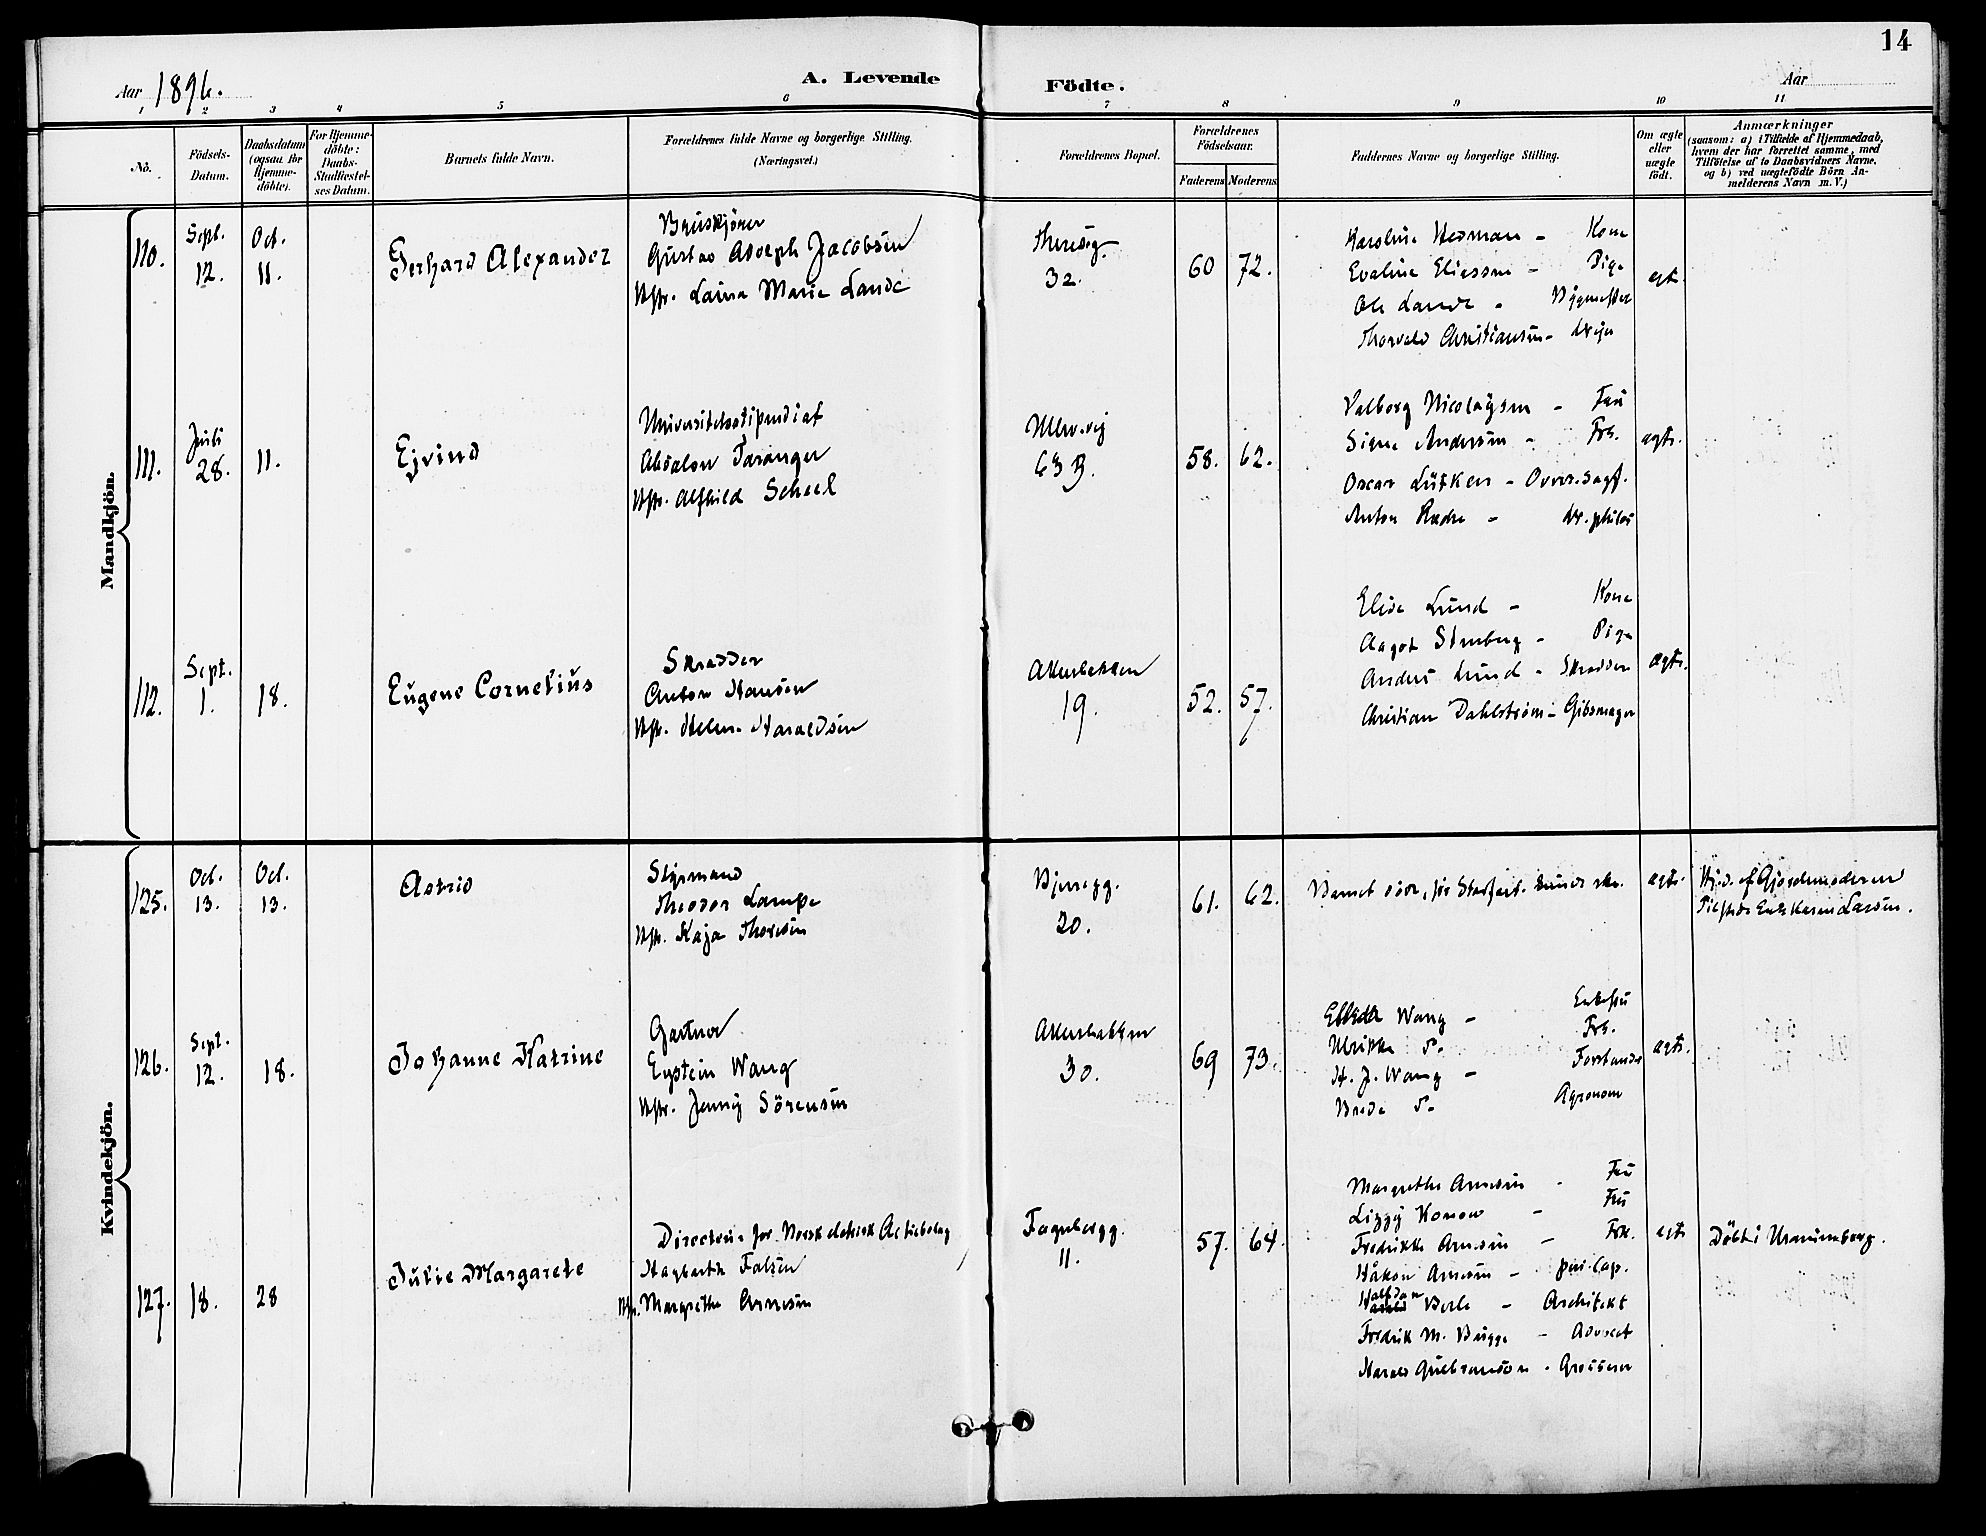 14
Aar 1896.
A. Levende Födte.
Aar
1 2 3 4 5 6 7 8 9 10 11
No.
Födsels-Datum.
Daabsdatum (ogsaa for Hjemme-döbte).
For Hjemme-döbte: Daabs-Stadfæstel-ses Datum.
Barnets fulde Navn.
Forældrenes fulde Navne og borgerlige Stilling.
(Næringsvei.)
Forældrenes Bopæl.
Forældrenes Födselsaar.
Faderens Moderens
Faddernes Navne og borgerlige Stilling.
Om ægte eller uægte födt.
Anmærkninger
(saasom: a) i Tilfælde af Hjemmedaab,
hvem der har forrettet samme, med
Tilföielse af to Daabsvidners Navne.
og b) ved uægtefödte Börn An-
melderens Navn m. V.)
Mandkjön.
110.
Sept. 12.
Oct. 11.
Gerhard Alexander
Gustav Adolph Jacobsen
Hstr. Laura Marie Lande
32.
60 72.
Karoline Hedman - Kone
Evaline Eliassen - Pige
Ole Lande - Bygmester
Thorvald Christiansen -
ægt.
111.
Juli 28.
11.
Ejvind
Universitetsstipendiat
Absalon Taranger
Hstr. Alfhild Scheel
Ullev.vej
63 B.
58. 62.
Valborg Nicolaysen - Fru
Signe Andersen - Frk.
Oscar Lütken - Overr.sagf.
Anton Ræder - dr. philos
ægte.
112.
Sept. 1.
18.
Eugene Cornelius
Skrædder
Anton Hansen
Hstr. Helene Haraldsen
Akersbakken
19.
52. 57.
Elise Lund - Kone
Aagot Stenberg - Pige
Anders Lund - Skrædder
Christian Dahlström - Gibsmager
ægte.
Kvindekjön.
125.
Oct. 13.
Oct. 13.
Astrid
Styrmand
Theodor Lampe
Hstr. Kaja Thoresen
Bjerregg.
20.
61. 62.
ægte.
Hjd. af Gjordemoderen
Tilstede Enke Karen Larsen.
126.
Sept. 12.
18.
Johanne Katrine
Gartner
Eystein Wang
Hstr. Jenny Sörensen
Akersbakken
30.
69 73.
Wang - Enkefru
Ulrikke D. Frk.
H. J. Wang - Forstander
Brede D. Agronom
ægte.
127.
18.
28
Julie Margarete
Directeur for Norsk elektrisk Actiebolag
Hagbarth Falsen
Hstr. Margrethe Arnesen
Fagerborgg.
11.
57. 64.
Margrethe Arnesen - Fru
Lizzy Konow - Fru
Fredrikke Arnesen - Frk.
Håkon Arnesen - pr.cap.
Halfdan Berle - Architekt
Fredrik M. Bugge - Advocat
Harald Gulbranson - Grosserer
ægte
Döbt i Uranienborg.